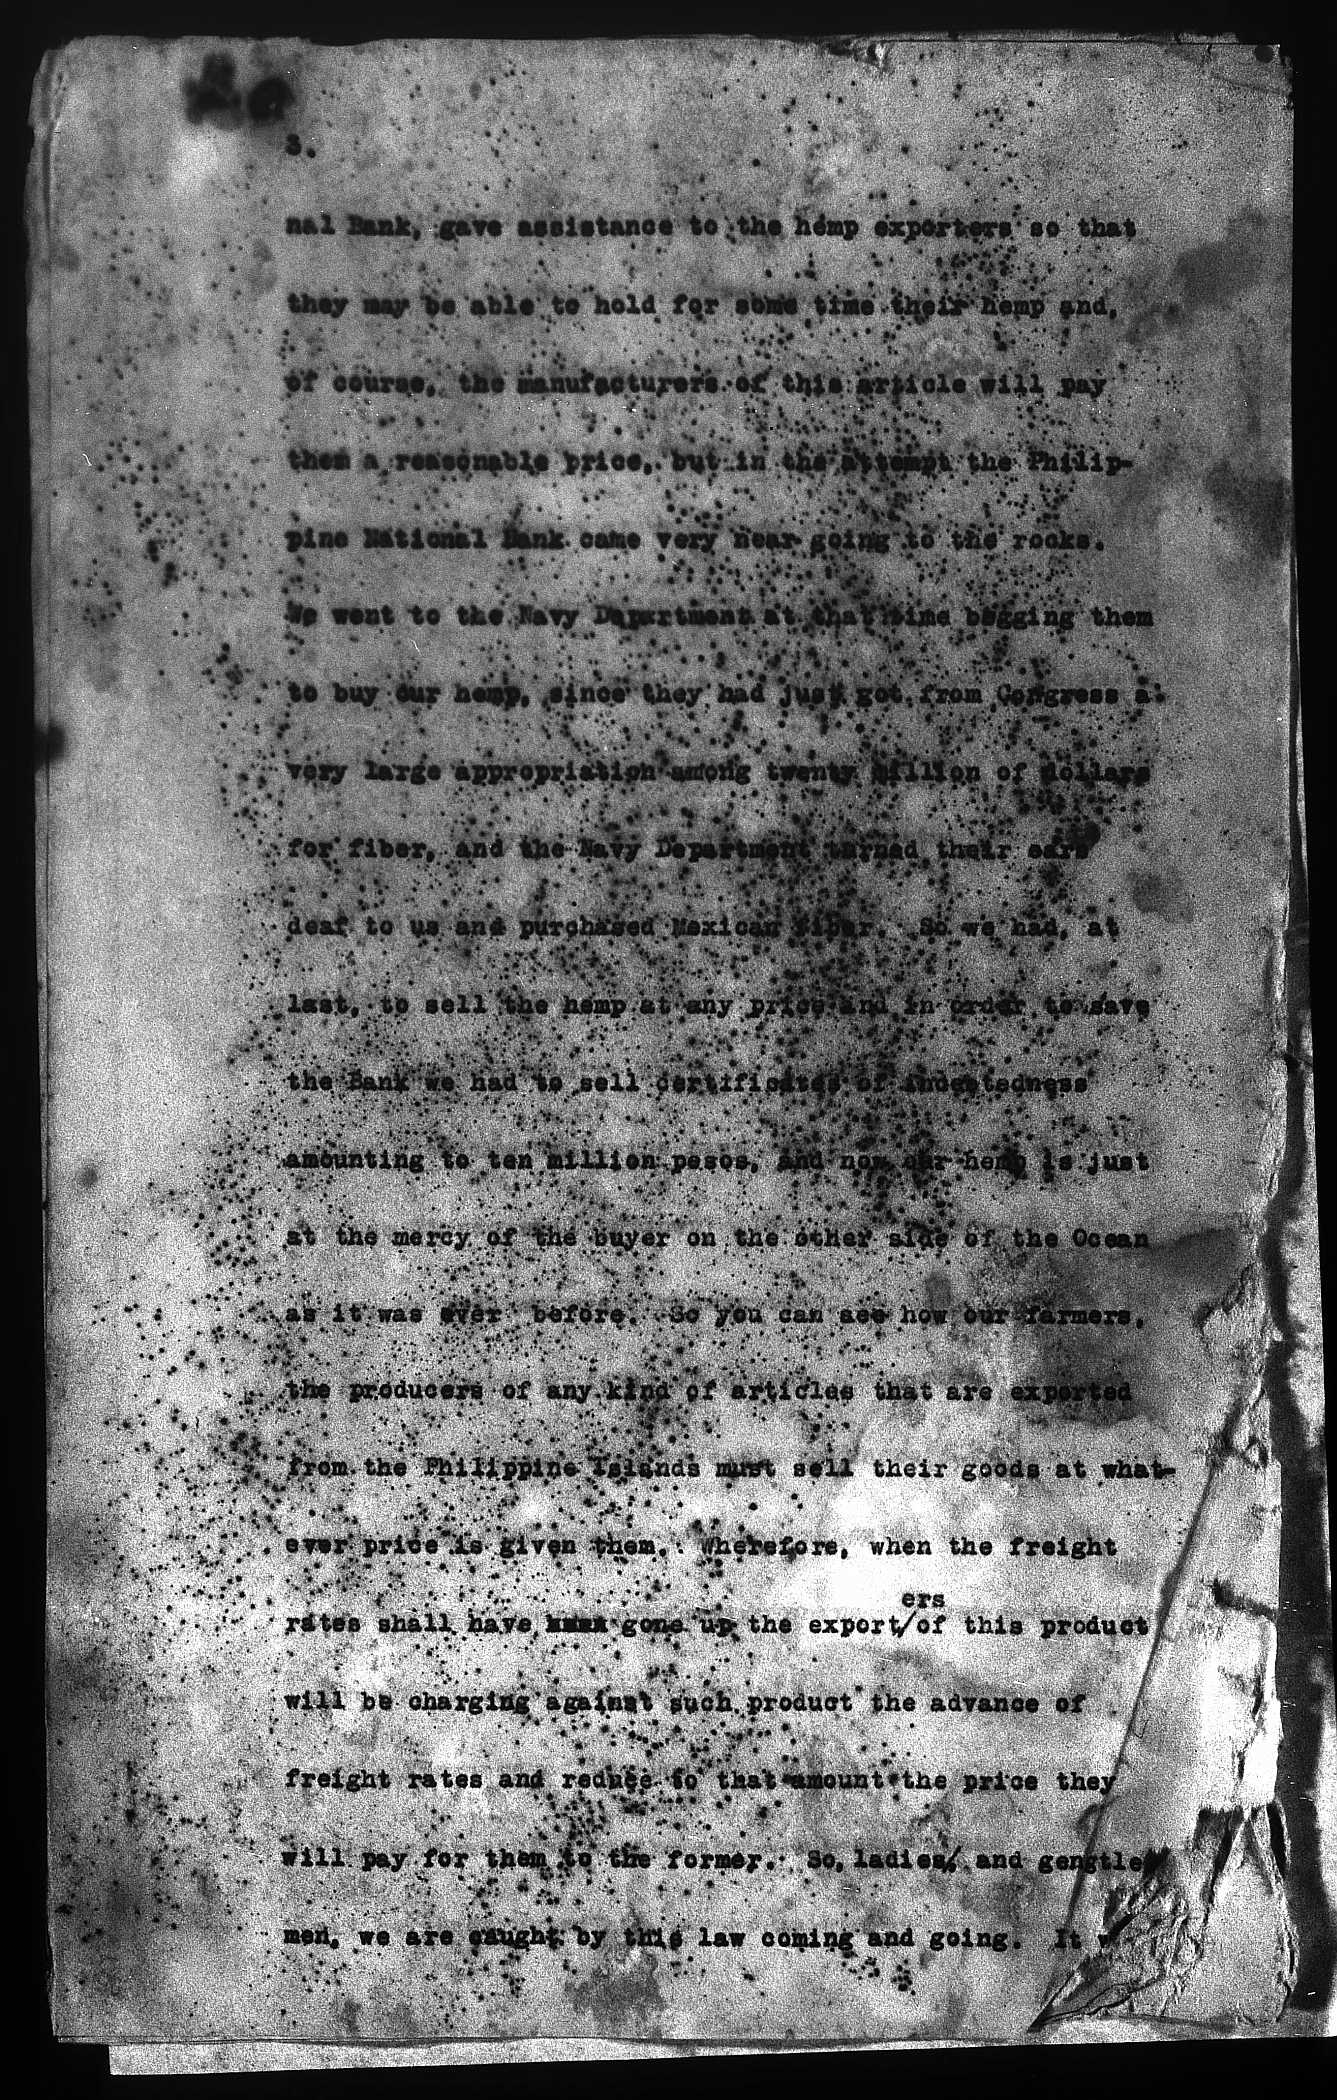 3.
nal Bank, gave assistance to the hemp exporters so that
they may be able to hold for some time their hemp and,
of course, the manufacturers of this article will pay
them a reasonable price, but in the attempt the Philip-
pine National Bank came very near going to the rocks.
We went to the Navy Department at that time begging them
to buy our hemp, since they had just got from Congress a
very large appropriation among twenty million of dollars
for fiber, and the Navy Department turned their ears
deaf to us and purchased Mexican fiber. So we had, at
last, to sell the hemp at any price and in order to save
the Bank we had to sell certificates of indebtedness
amounting to ten million pesos, and now our hemp is just
at the mercy of the buyer on the other side of the Ocean
as it was ever before. So you can see how our farmers,
the producers of any kind of articles that are exported
from the Philippine Islands must sell their goods at what-
ever price is given them. Wherefore, when the freight
ers
rates shall have gone up the export/of this product
will be charging against such product the advance of
freight rates and reduce to that amount the price they
will pay for them to the former. So, ladies, and gengtle
men, we are caught by this law coming and going. It